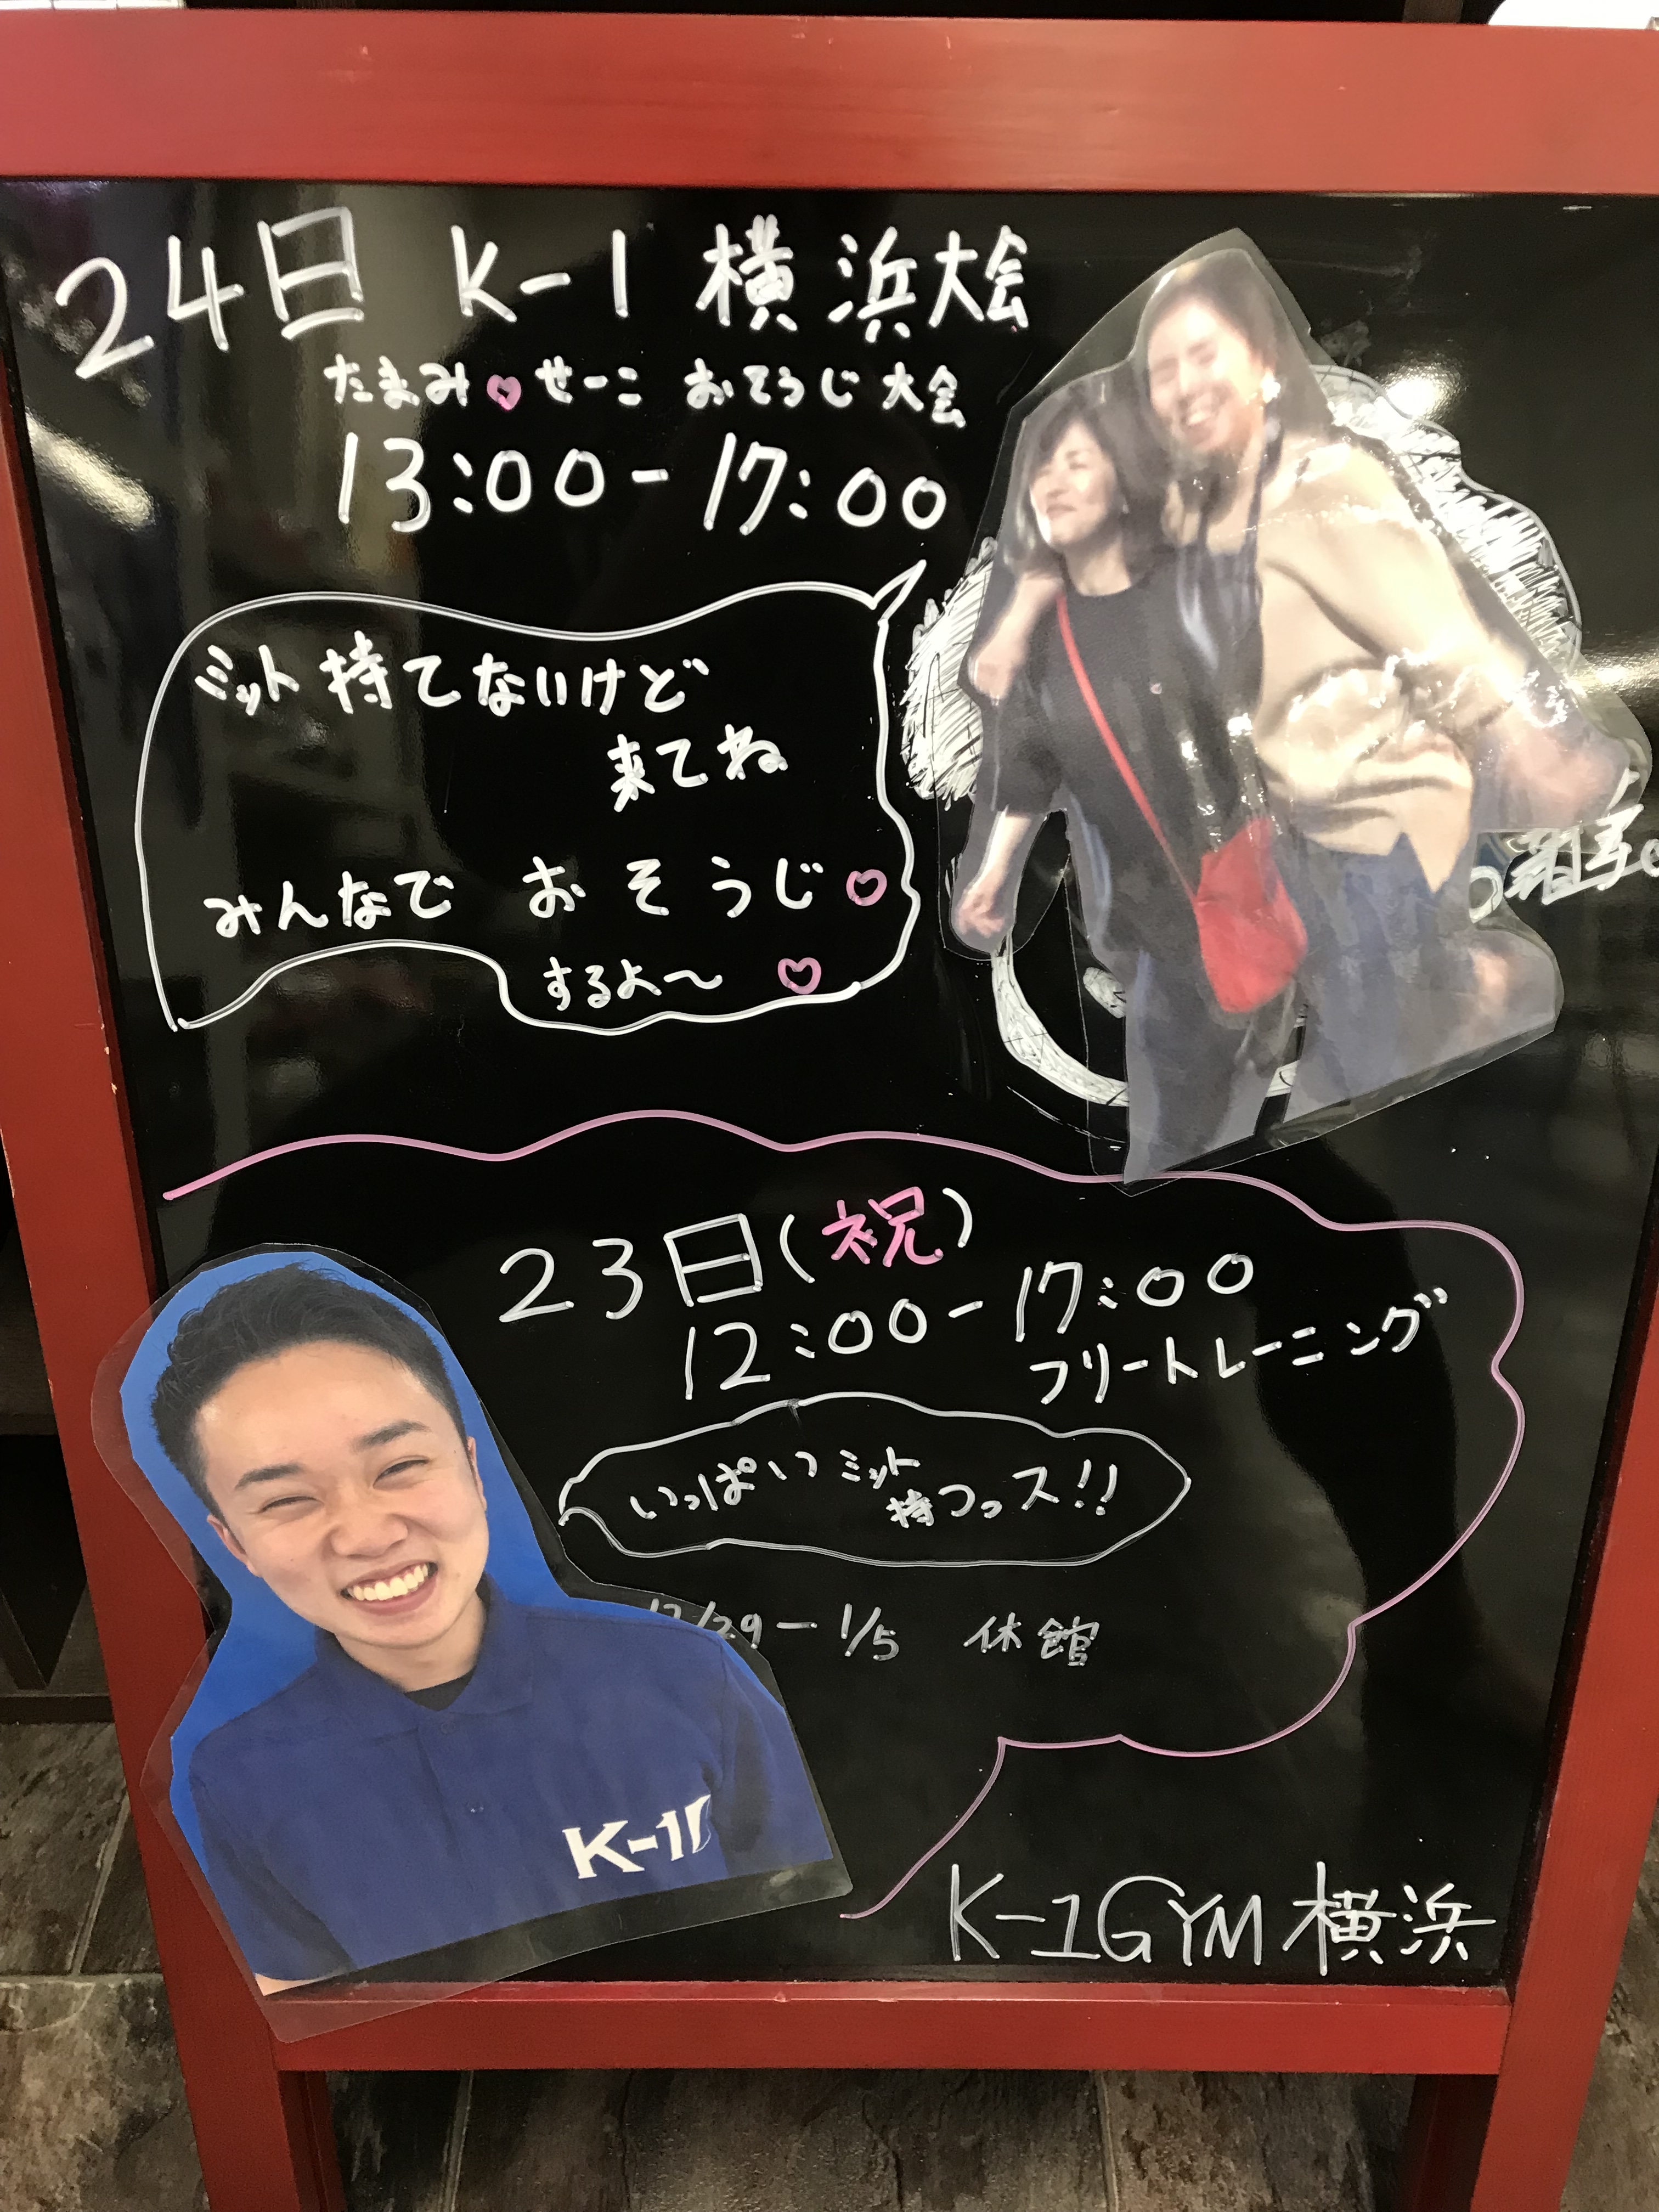 24日 K-1 横浜大会
たまみ♡せーこ おそうじ大会
13:00-17:00
ミット持てないけど
来てね
みんなで おそうじ♡
するよ～ ♡
23日(祝)
12:00-17:00
フリートレーニング
いっぱいミット
持つっス!!
12/29-1/5 休館
K-1
K-1GYM横浜